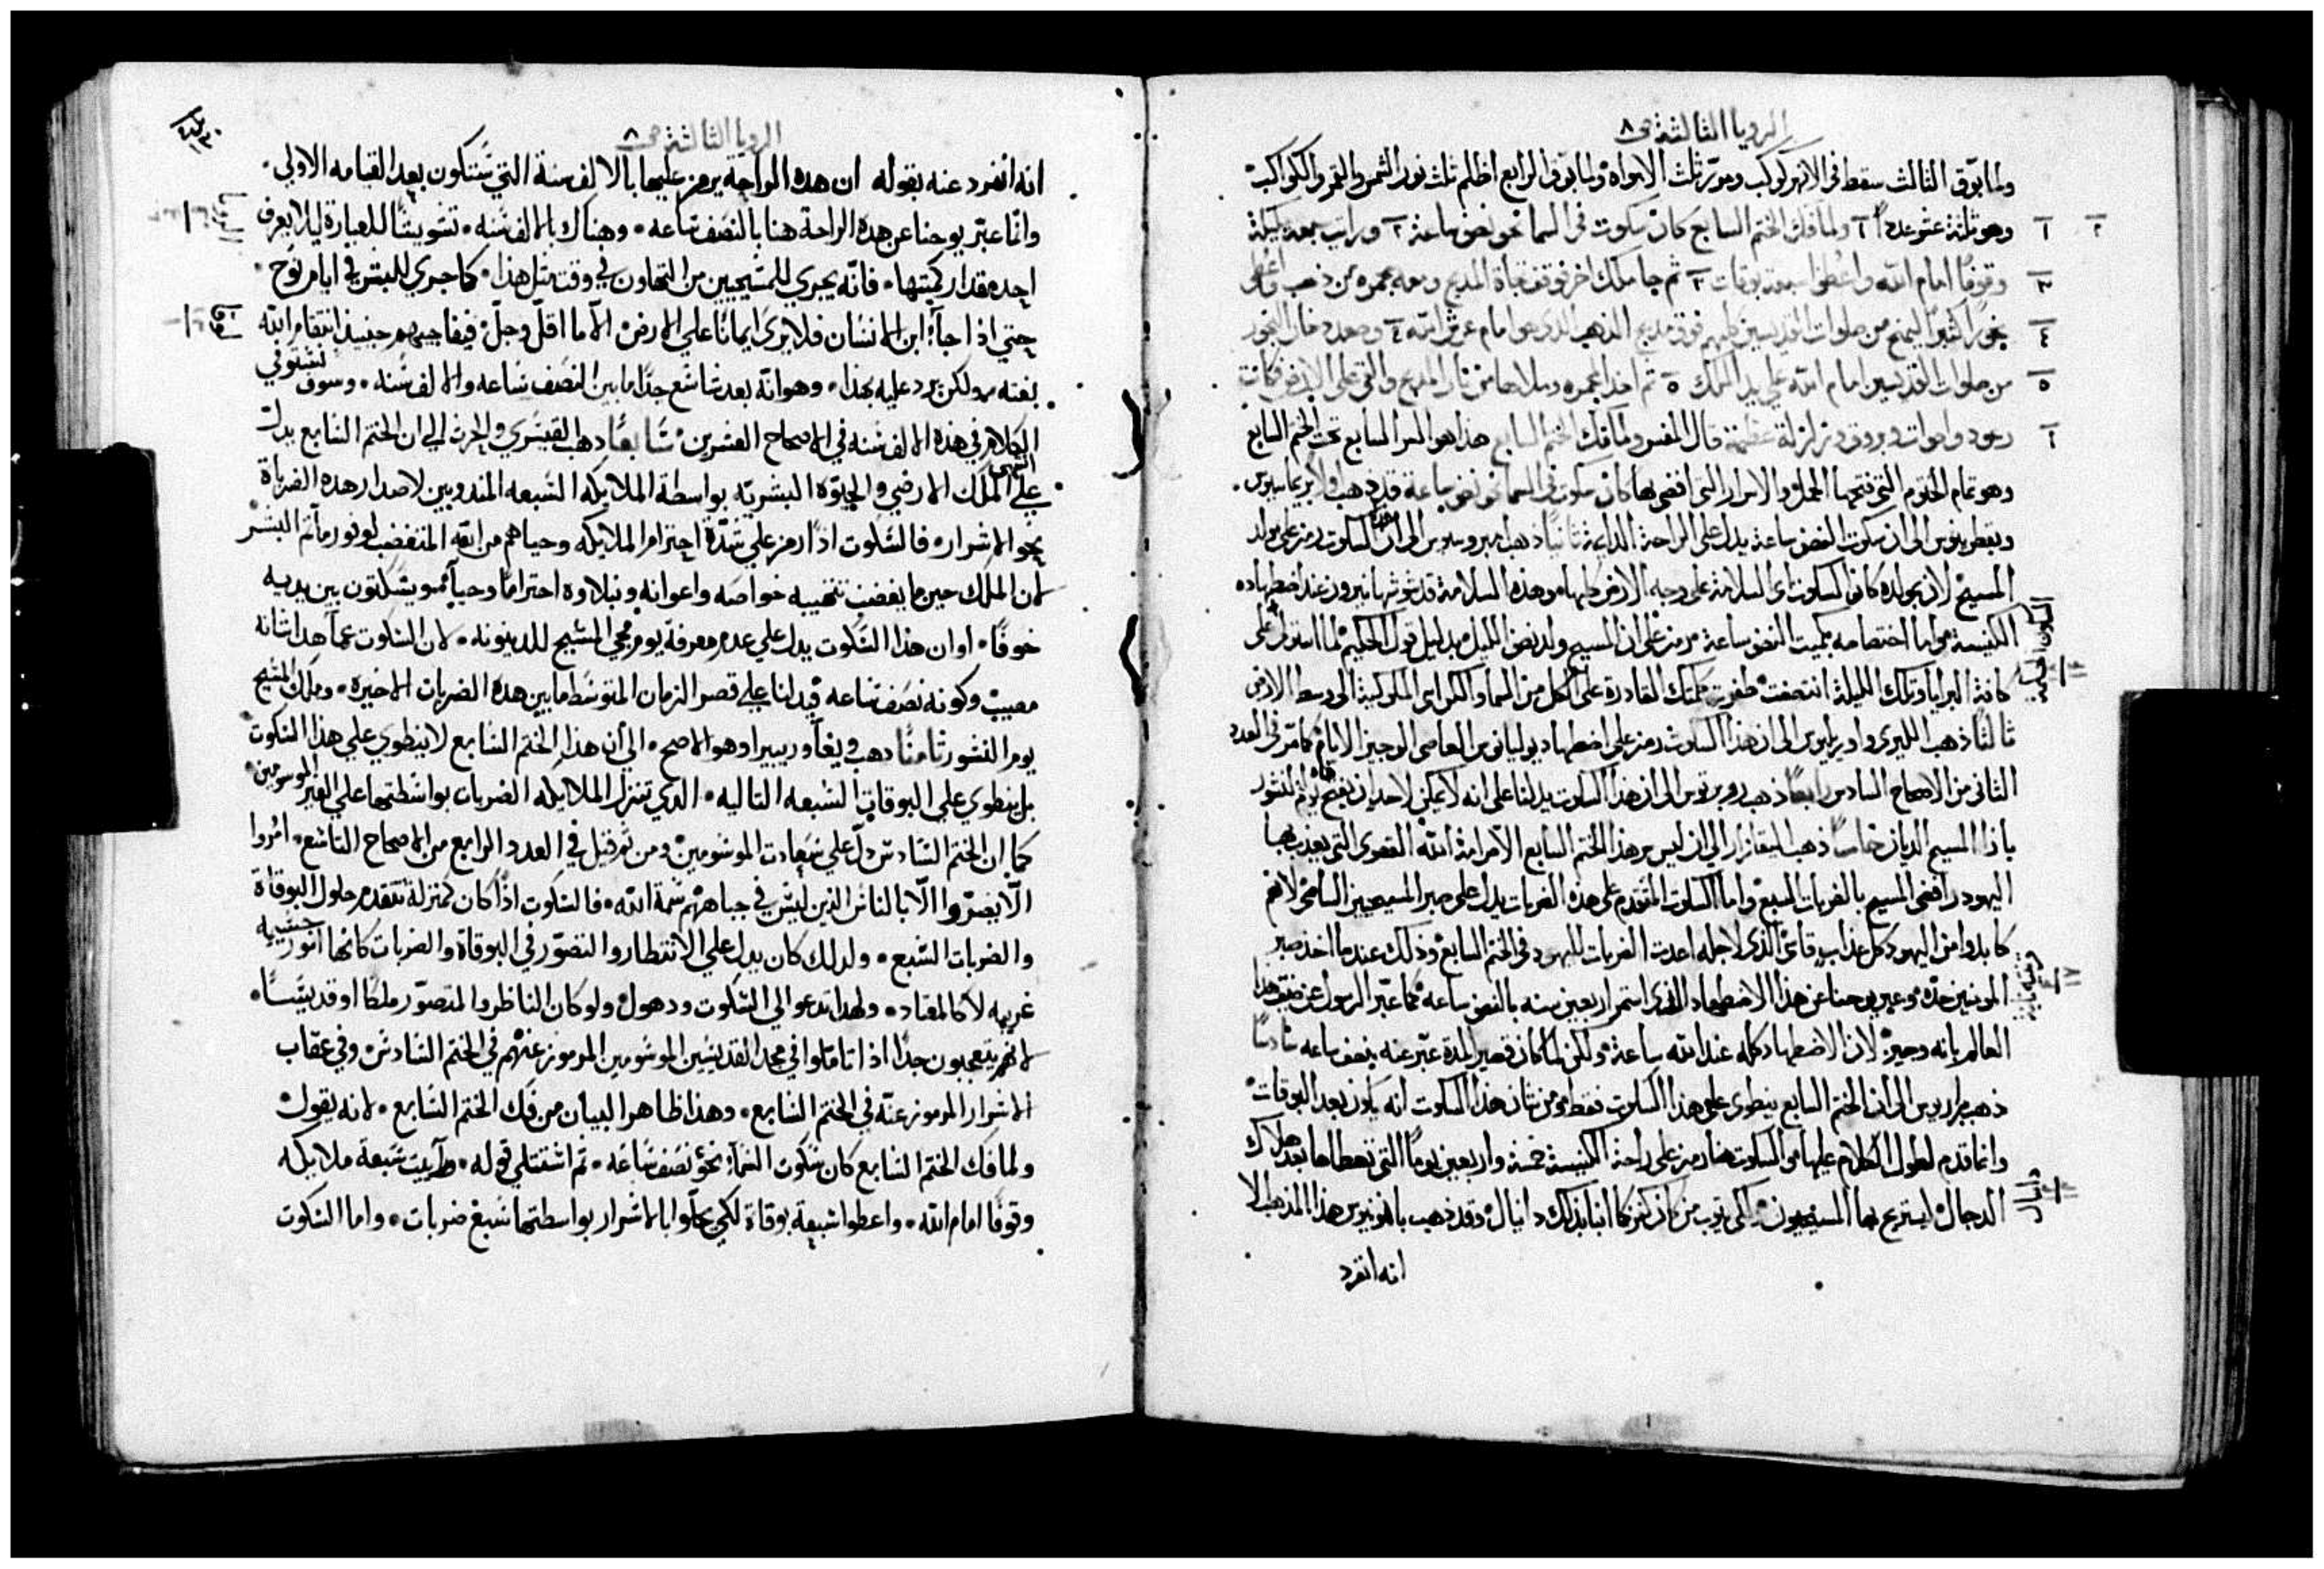 الرويا الثالثة ص ٨
ولما بوّق الثالث سقط في الانهر كوكب ومرّر ثلث الامواه ولما بوّق الرابع اظلم ثلث نور الشمس والقمر والكواكب
وهو ثلثة عشر عددًا ١ ولما فك الختم السابع كان سكوت في السما نحو نصف ساعة ٢ ورايت سبعة ملايكة
وقوفًا امام الله واعطوا سبعة بوقات ٣ ثم جا ملاك اخر فوقف تجاه المذبح ومعه مجمره من ذهب واعطى
بخورًا كثيرًا ليمنح من صلوات القديسين كلهم فوق مذبح الذهب الذي هو امام عرش الله ٤ وصعد دخان البخور
من صلوات القديسين امام الله علي يد الملاك ٥ ثم اخذ المجمره وملاها من نار المذبح والقي على الارض فكانت
رعود واصوات وبروق وزلزلة عظيمة قال المفسر ولما فك الختم السابع هذا هو السر السابع تحت الختم السابع
وهو تمام الختوم التي فتحها الحمل والاسرار التي افضي بها كان سكوت في السما نحو نصف ساعة قد ذهب اولاً بريماسيوس
وبعض الى ان سكوت النصف ساعة يدل على الراحة الدايمة ثانيًا ذهب امبروسيوس الى ان السكوت رمز على مولد
المسيح لان بمولده كان السكوت اي السلامة على وجه الارض كلها وهذه السلامة قد شوشها نيرون عند اضطهاده
الكنيسة واما اختصامه بكميت النصف ساعة مرمز على ان المسيح ولد نصف الليل بدليل قول الحكيم لما استولى على
كافة البرايا وتلك الليلة انتصفت طفرت كلمتك القادرة على كل من السما والكراسي الملوكية الى وسط الارض
ثالثًا ذهب الليري واوريليوس الى ان هذا السكوت رمز على اضطهاد يوليانوس العاصي الوجيز الايام كما مّر في العدد
الثاني من الاصحاح السادس رابعًا ذهب روبرتوس الى ان هذا السكوت يدلنا على انه لا يمكن لاحد ان يفتح يوم النشور
باذا المسيح الديان خامسًا ذهب القازار الي ان ليس من هذا الختم السابع الا مرامة الله القصوى التي يعذب بها
اليهود رافضي المسيح بالضربات السبع واما السكوت المتقدم على هذه الضربات يدل على صبر المسيحيين السامي لانهم
كابدوا من اليهود كل عذاب قاسي الذي لاجله اعدت الضربات لليهود في الختم السابع وذلك عندما اخذ صبر
المومنين حده وعبر يوحنا عن هذا الاضطهاد الذي استمر اربعين سنه بالنصف ساعة كما عبّر الرسول عن ضيق هذا
العالم بانه وجيز لان الاضطهاد كله عند الله ساعة ولكن لما كان قصير المدة عبّر عنه بنصف ساعه سادسًا
ذهب الى ان الختم السابع ينطوي على هذا السكوت فقط ومن شان هذا السكوت انه يكون بعد البوقات
وانما قدم لطول الكلام عليها السكوت هنا رمز على راحة الكنيسة خمسة واربعين يومًا التي تعطاها بعد هلاك
الدجال ليستريح بها المسيحيون لكي يتوب من كان كما انبا بذلك دانيال وقد ذهب بانونيوس هذا المذهب الا
انه انفرد
الرويا الثالثة ص ٨
انه انفرد عنه بقوله ان هذه الراحة يرمز عليها بالالف سنة التي ستكون بعد القيامه الاولي
وانما عبّر يوحنا عن هذه الراحة هنا بالنصف ساعه وهناك بالالف سنه تشويشًا للعبارة ليلا يعرف
احد مقدار كميتها فانه يجري للمسيحيين من التهاون في وقت مثل هذا كما جري للبشر في ايام نوح
حتي اذا جآ ابن الانسان فلا يري ايمانًا علي الارض الا ما اقلّ وجلّ فيفاجيهم حينيذ انتقام الله
بغته ولكن يرد عليه بهذا وهو انه بعد شاسع جدًا ما بين النصف ساعه والالف سنه وسوف نستوفي
الكلام في هذه الالف سنه في الاصحاح العشرين سابعًا ذهب القيسري والحرث الي ان الختم السابع يدل
علي الملك الارضي والحيوة البشريه بواسطة الملايكه السبعه المندوبين لاصدار هذه الضرباة
نحو الاشرار فالسكوت اذًا رمز علي شدّة احترام الملايكه وحياهم من الله المتغضب لوفور مآثم البشر
لان الملك حين ما يغضب تتخيبه خواصه واعوانه ونبلاوه احترامًا وحيآ ويسكتون بين يديه
خوفًا او ان هذا السكوت يدل علي عدم معرفة يوم مجي المسيح للدينونه لان السكوت عما هذا شانه
مغيب وكونه نصف ساعه فيدلنا علي قصر الزمان المتوسط ما بين هذه الضربات الاخيرة وملك المسيح
يوم النشور ثامنًا ذهب ويغا وريبيرا وهو الاصح الي أن هذا الختم السابع لا ينطوي علي هذا السكوت
بل ينطوي علي البوقات السبعه التاليه الذي تنزل الملايكه الضربات بواسطتها علي الغير الموسومين
كما ان الختم السادس دلّ علي سعادت الموسومين ومن ثم قيل في العدد الرابع من الاصحاح التاسع امروا
الّا يضرّوا الّا بالناس الذين ليس في جباههم سمة الله فالسكوت اذًا كان كمنزلة تتقدم حلول البوقاة
والضربات السبع ولذلك كان يدل علي الانتظار والتصوّر في البوقاة والضربات كانها امور خشيه
غريبه لا كالمعتاد ولهذا تدعو الي السكوت ودهول ولو كان الناظر والمتصوّر ملكًا او قديسًا
لانهم يتعجبون جدًا اذا تاملوا في مجد القديسين الموسومين المرموز عنهم في الختم السادس وفي عقاب
الاشرار المرموز عنه في الختم السابع وهذا ظاهر البيان من فك الختم السابع لانه يقول
ولما فك الختم السابع كان سكوت السمآ نحو نصف ساعه ثم استتلي قوله ورآيت سبعة ملايكه
وقوفًا امام الله واعطوا سبعة بوقاة لكي يحلّوا بالاشرار بواسطتها سبع ضربات واما السكوت